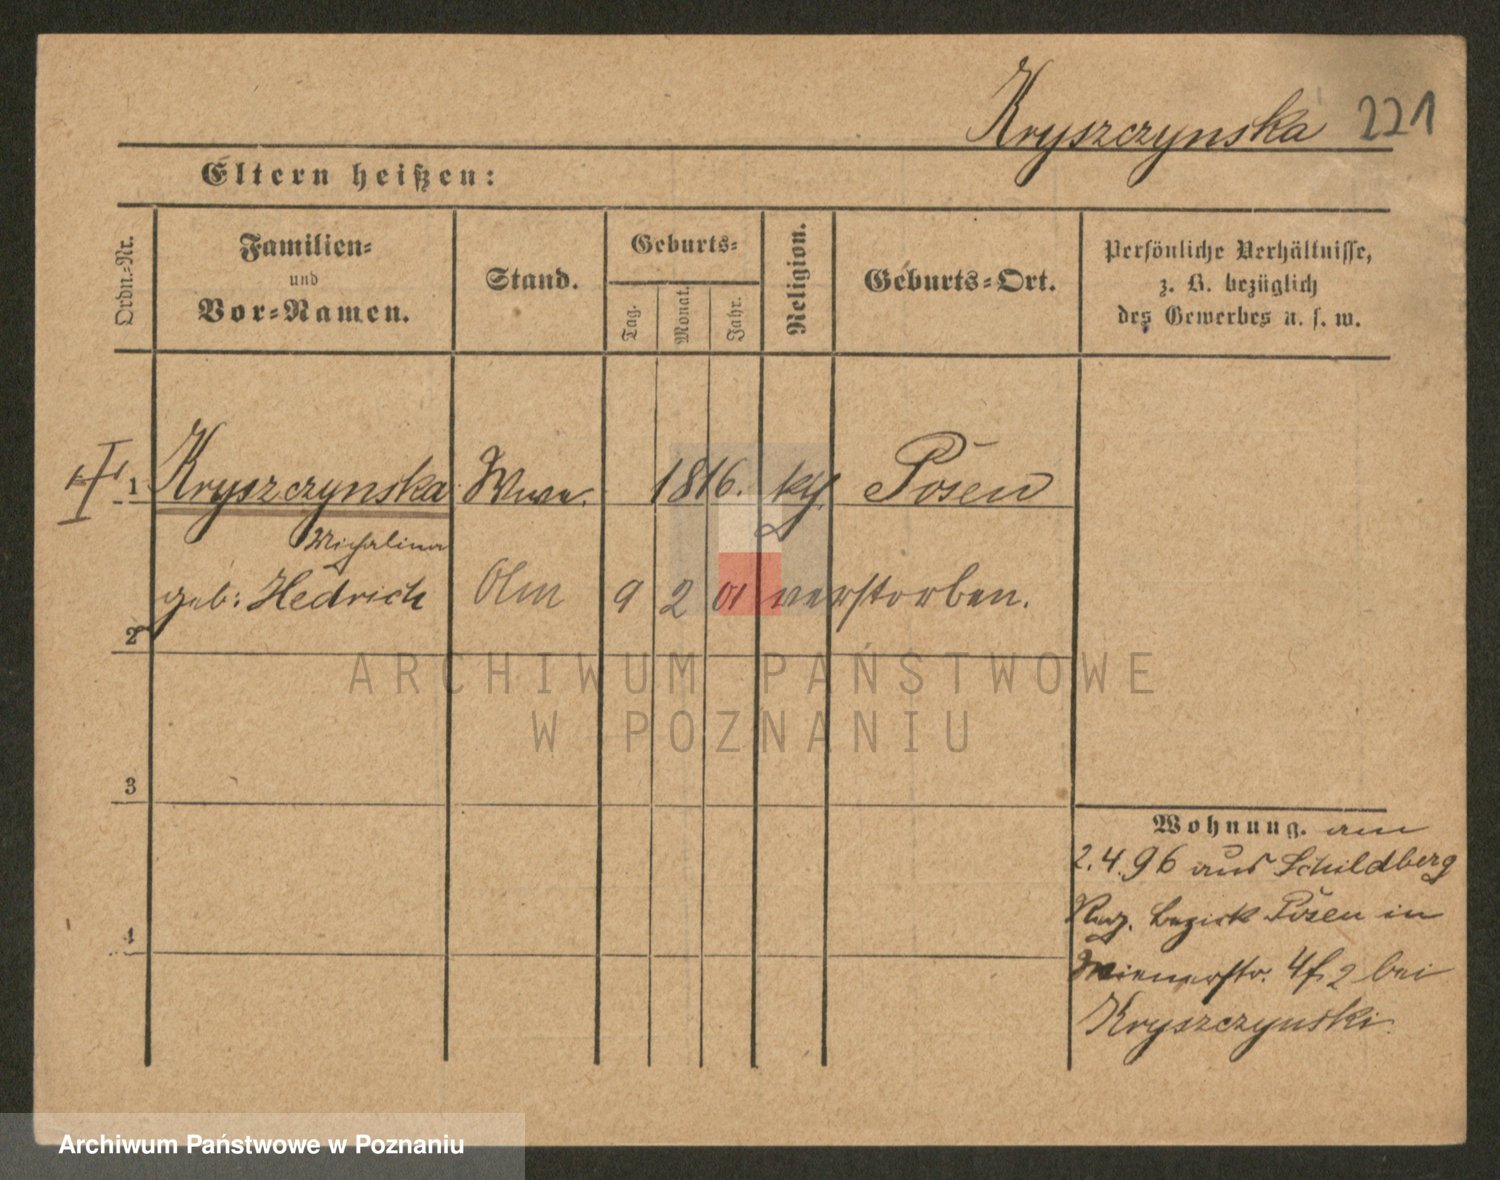 Kryszczynska 221
Eltern heißen:
Ordn.-Nr.
Familien-
und
Vor-Namen.
Stand.
Geburts-
Tag.
Monat.
Jahr.
Religion.
Geburts-Ort.
Persönliche Verhältnisse,
z. B. bezüglich
des Gewerbes u. s. w.
1 Kryszczynska Wwe. 1816. kth. Posen
Michalina
geb: Hedrich 9 2 01 verstorben.
2
3
4
Wohnung. am
2.4.96 aus Schildberg
Reg. Bezirk Posen in
Wienerstr. 4 2 bei
Kryszczynski
ARCHIWUM PAŃSTWOWE
W POZNANIU
Archiwum Państwowe w Poznaniu